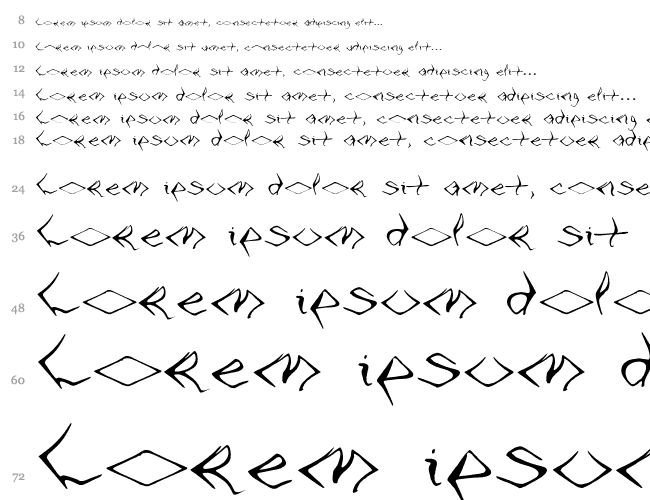 8 Lorem ipsum dolor sit amet, consectetuer adipiscing elit...
10 Lorem ipsum dolor sit amet, consectetuer adipiscing elit...
12 Lorem ipsum dolor sit amet, consectetuer adipiscing elit...
14 Lorem ipsum dolor sit amet, consectetuer adipiscing elit...
16 Lorem ipsum dolor sit amet, consectetuer adipiscing e
18 Lorem ipsum dolor sit amet, consectetuer adip
24 Lorem ipsum dolor sit amet, conse
36 Lorem ipsum dolor sit
48 Lorem ipsum dolo
60 Lorem ipsum d
72 Lorem ipsu